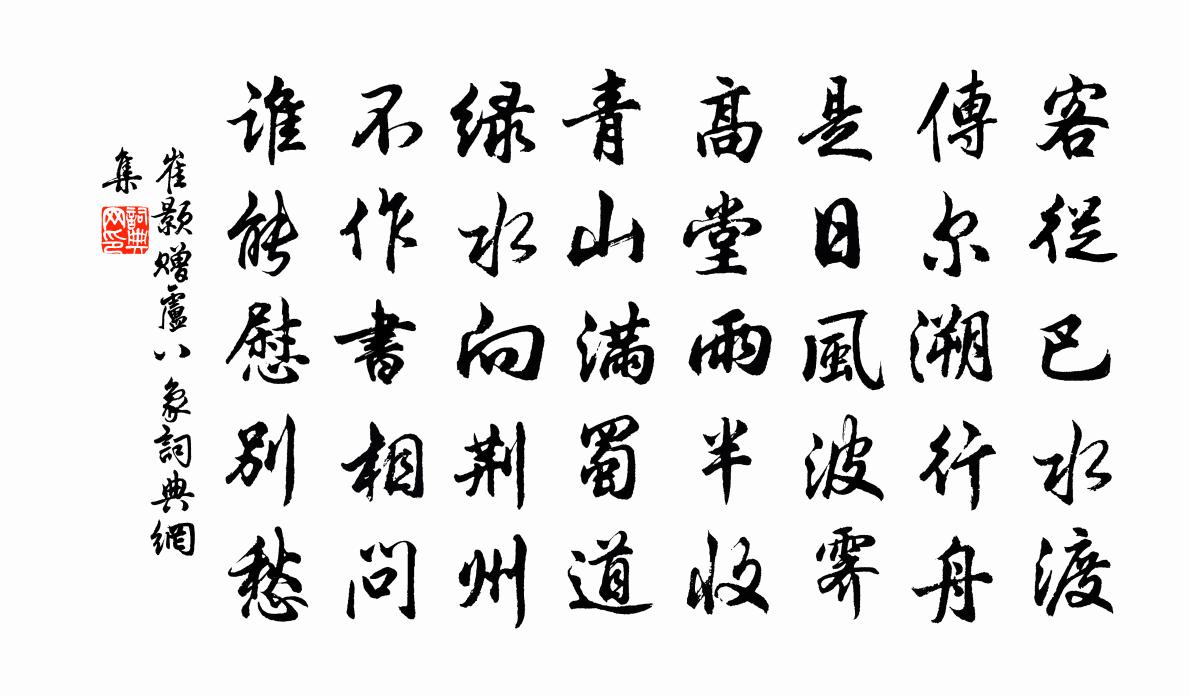 客從巴水渡
傳尔溯行舟
是日風波霽
高堂雨半收
青山滿蜀道
緑水向荆州
不作書相問
誰能慰別愁
崔顥贈盧八象詞典網
集
詞典网印